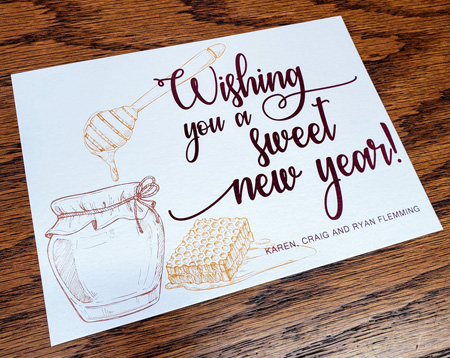 Wishing
you a
sweet
new year!
KAREN, CRAIG AND RYAN FLEMMING